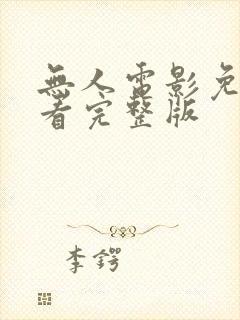 無人電影免
看完整版
李鍔